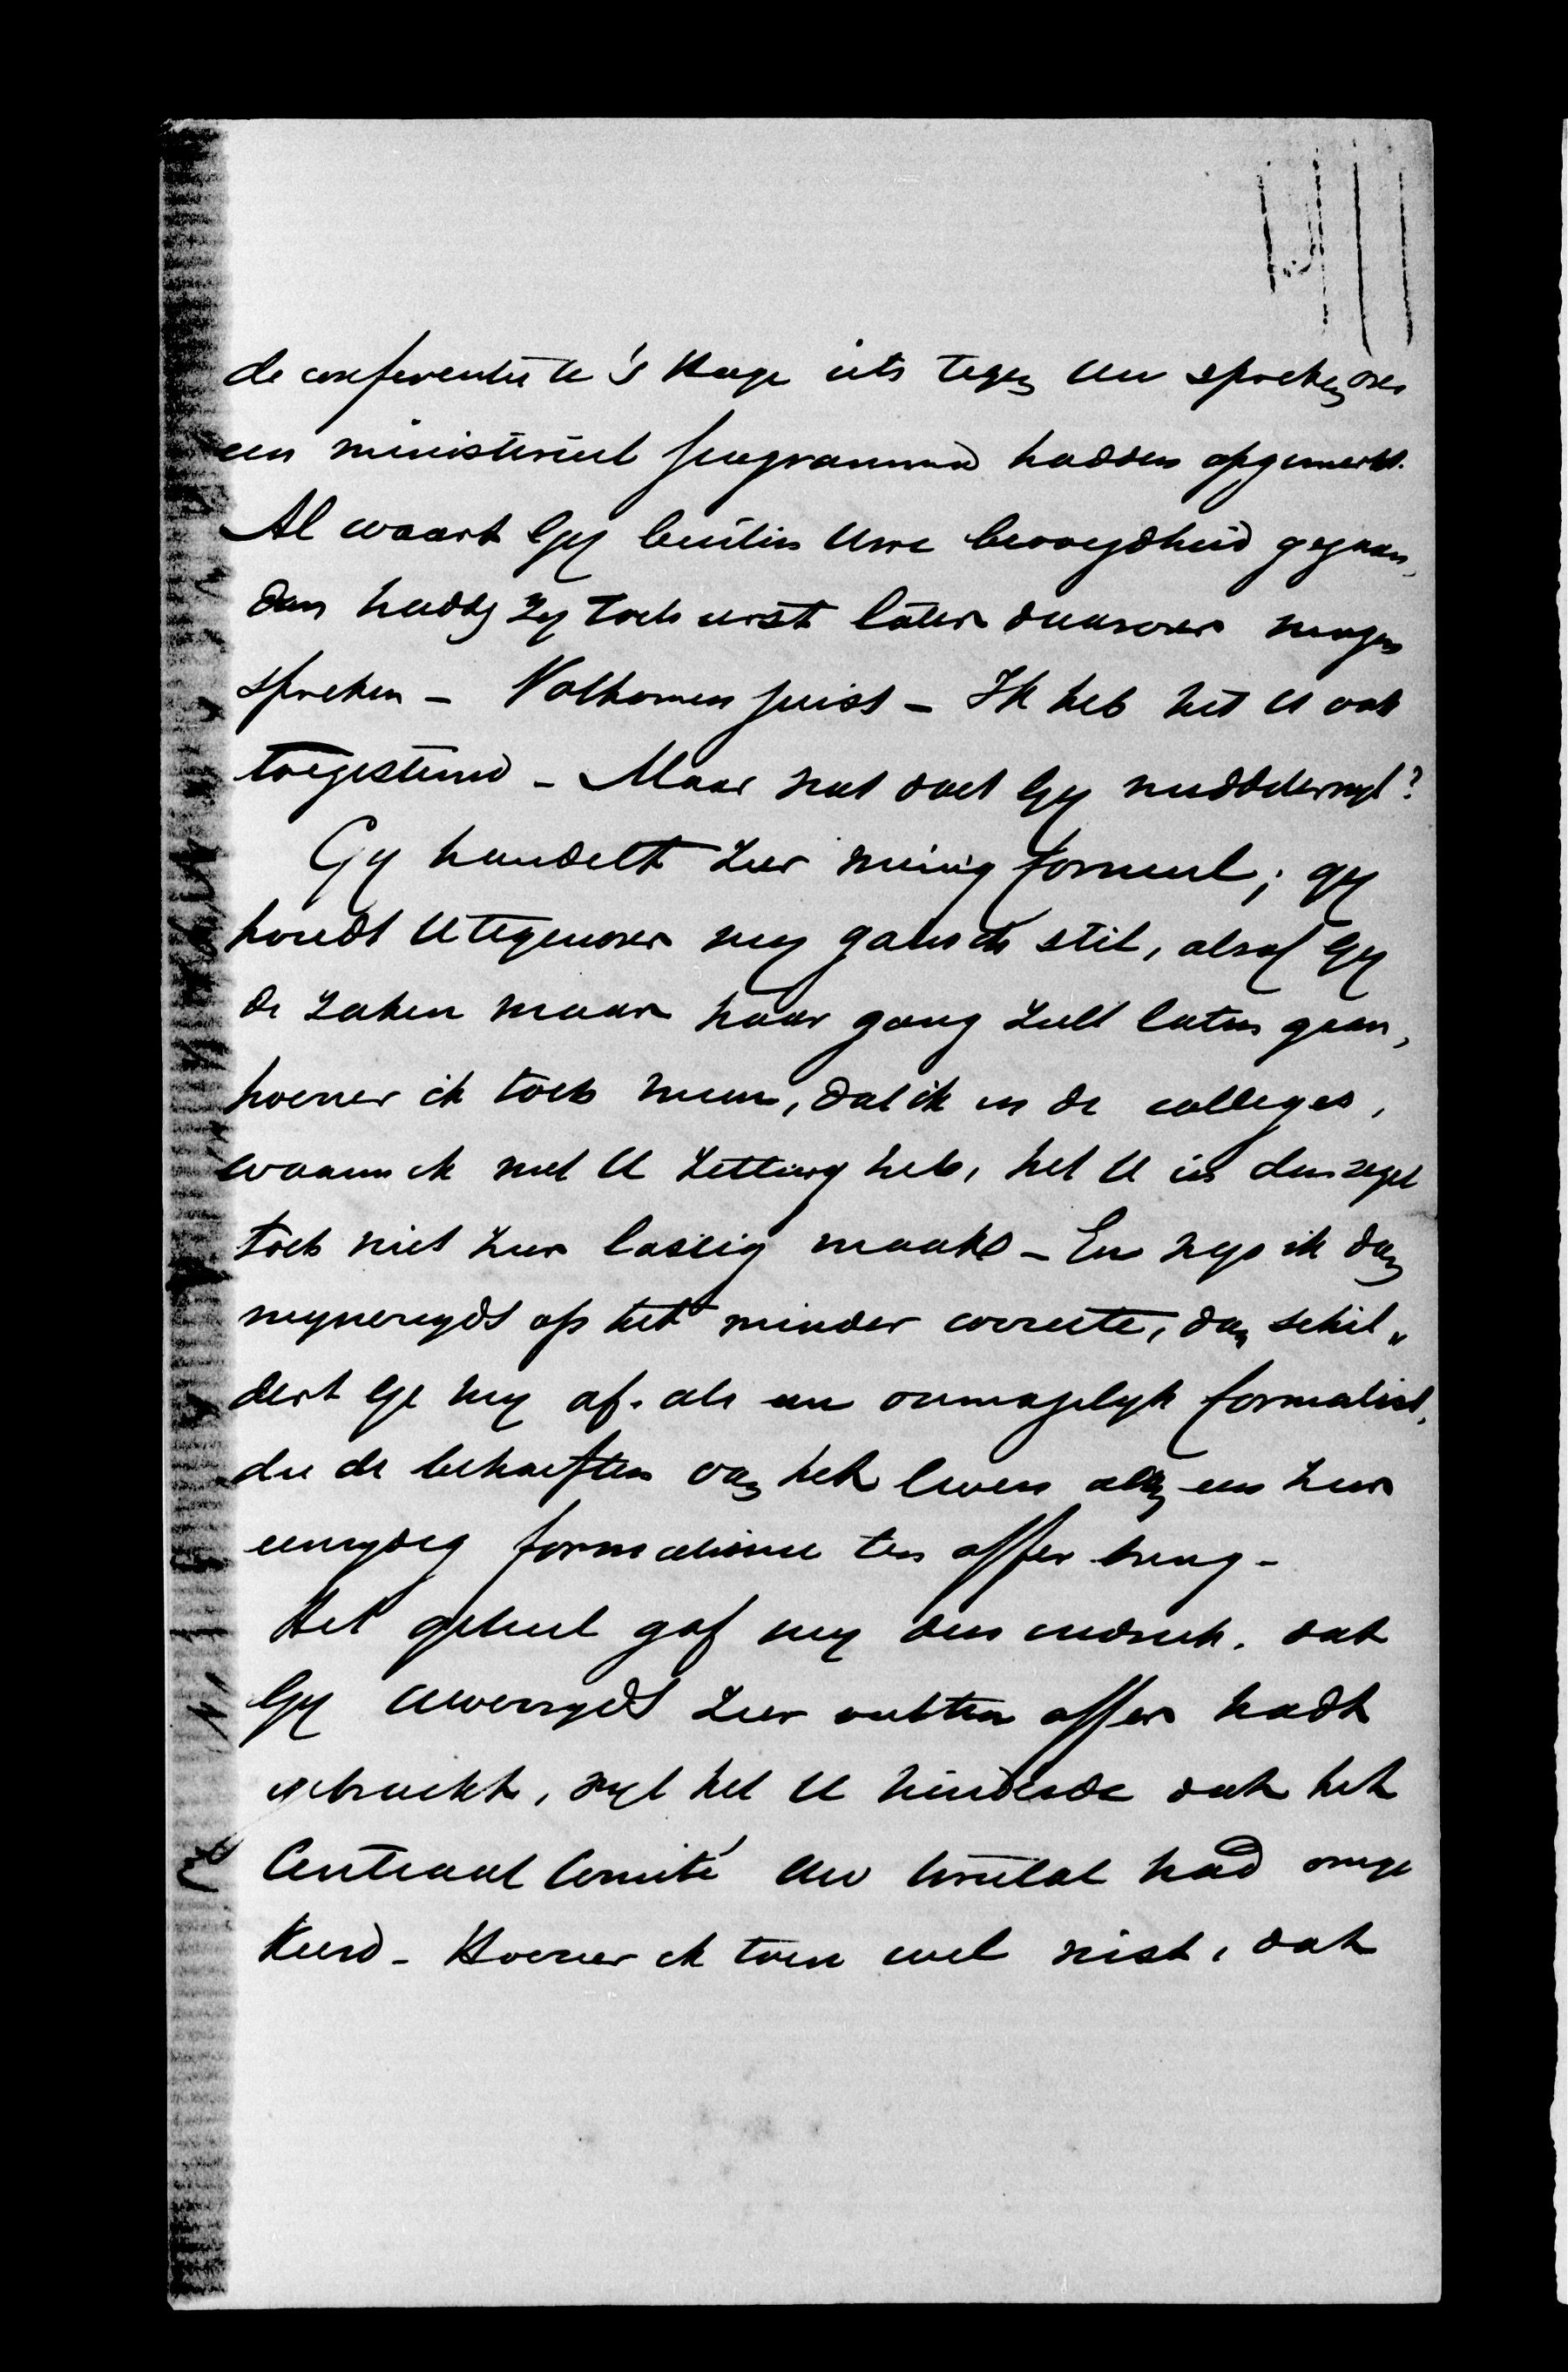 de conferentie te 's Hage iets tegen uw spreken over
een ministerieel programma hadden opgemerkt.
Al waart Gy buiten Uwe bevoegdheid gegaan,
dan hadden zy toch eerst later daarover mogen
spreken – Volkomen juist – Ik heb het U ook
toegestemd – Maar wat doet Gy middelerwyl?
Gy handelt zeer weinig formeel; gy
houdt U tegenover my gansch stil, alsof Gy
de zaken maar haar gang zult laten gaan,
hoezeer ik toch meen, dat ik in de colleges,
waarin ik met U zitting heb, het U in den regel
toch niet zeer lastig maak – En wys ik dan
mynerzyds op het minder correcte, dan schil„
dert Ge my af als een onmogelyk formalist,
die de behoeften van het leven aan een zeer
eenzydig formalisme ten offer breng –
Het geheel gaf my den indruk, dat
Gy Uwerzyds zeer ten offer hadt
gebracht, wyl het U hinderde dat het
Centraal Comité Uw had omge
keerd – Hoezeer ik toen wel wist, dat